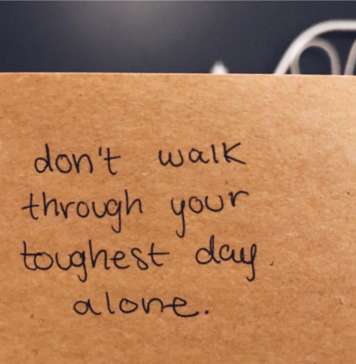 don't walk
through your
toughest day.
alone.